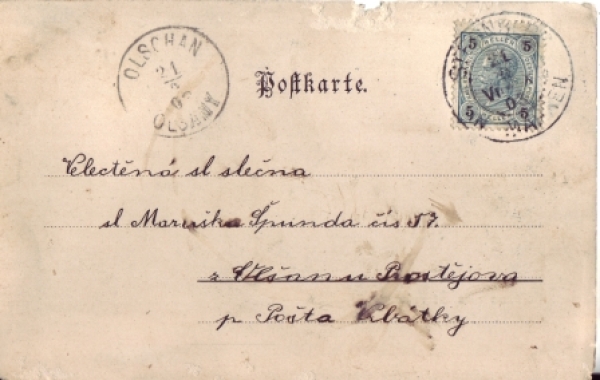 OLSCHAN
21
OLŠANY
Postkarte.
5 HELLER 5
21
VI
5 5
Velectěná sl slečna
sl Maruška Špunda čís 57.
z Olšan u Prostějova
p Pošta Vrbátky